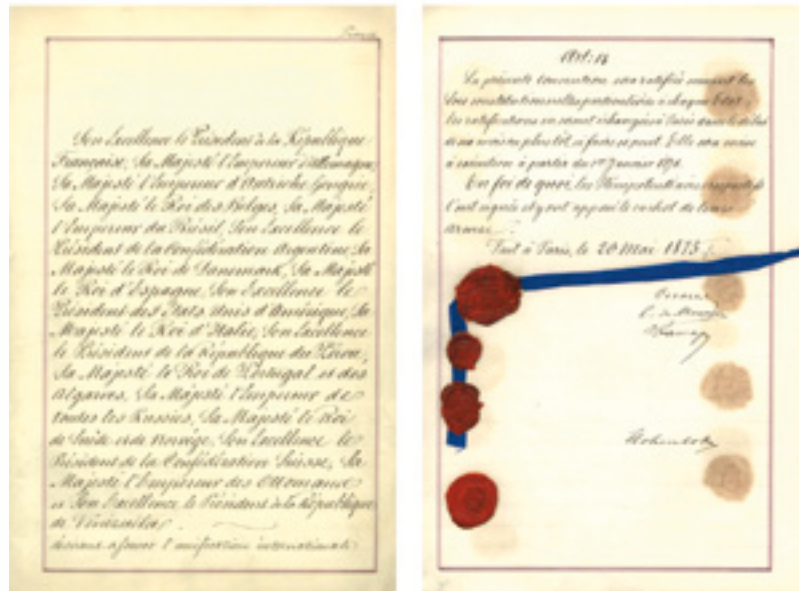 Son Excellence le Président de la République
Française, Sa Majesté l'Empereur d'Allemagne,
Sa Majesté l'Empereur d'Autriche Hongrie,
Sa Majesté le Roi des Belges, Sa Majesté
l'Empereur du Brésil, Son Excellence le
Président de la Confédération Argentine, Sa
Majesté le Roi de Danemark, Sa Majesté
le Roi d'Espagne, Son Excellence le
Président des Etats Unis d'Amérique, Sa
Majesté le Roi d'Italie, Son Excellence
le Président de la République du Pérou,
Sa Majesté le Roi de Portugal et des
Algarves, Sa Majesté l'Empereur de
toutes les Russies, Sa Majesté le Roi
de Suède et de Norvège, Son Excellence le
Président de la Confédération Suisse, Sa
Majesté l'Empereur des Ottomans
et Son Excellence le Président de la République
de Vénézuela,
désirant assurer l'unification internationale
Art: 14
La présente Convention sera ratifiée suivant les
lois constitutionnelles particulières à chaque Etat;
les ratifications en seront échangées à Paris dans le délai
de six mois ou plus tôt, si faire se peut. Elle sera mise
à exécution à partir du 1er Janvier 1876.
En foi de quoi, les Plénipotentiaires respectifs
l'ont signée et y ont apposé le cachet de leurs
armes.
Fait à Paris, le 20 Mai 1875
Hohenlohe